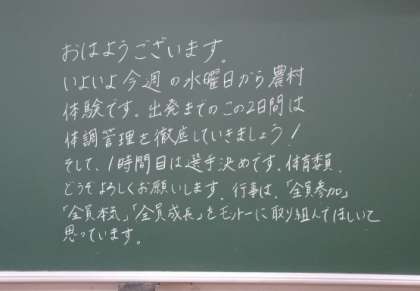 おはようございます。
いよいよ今週の水曜日から農村
体験です。出発までのこの2日間は
体調管理を徹底していきましょう!
そして、1時間目は選手決めです。体育委員、
どうぞよろしくお願いします。行事は、「全員参加」
「全員本気」「全員成長」をモットーに取り組んでほしいて
思っています。